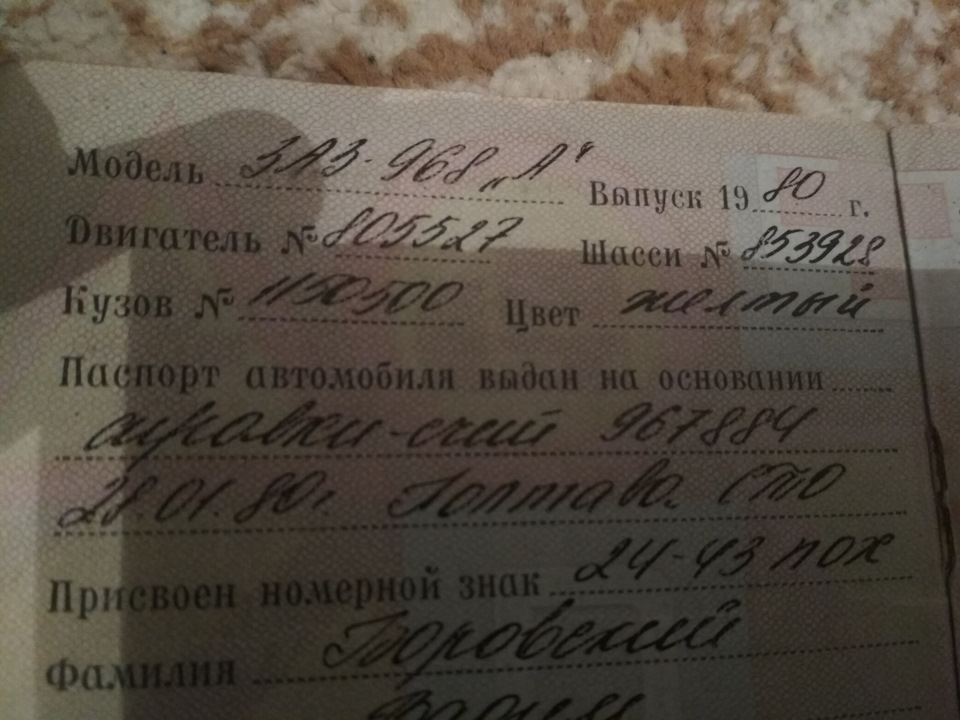 Модель ЗАЗ-968 „А“ Выпуск 1980 г.
Двигатель № 805527 Шасси № 853928
Кузов № 1150500 Цвет желтый
Паспорт автомобиля выдан на основании
справки-счет 967884
28.01.80г. Полтава СТО
Присвоен номерной знак 24-43 ПОХ
Фамилия Боровский